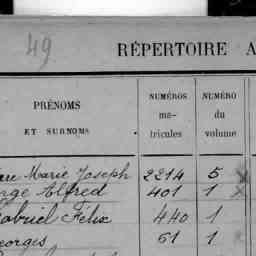 49
RÉPERTOIRE A
PRÉNOMS ET SURNOMS
NUMÉROS ma- tricules
NUMÉRO du volume
Marie Joseph 2214 5 x
Alfred 401 1 x
Félix 440 1
61 1